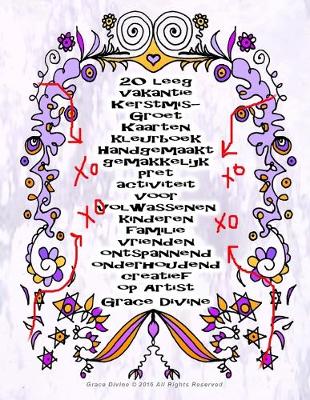 20 Leeg
Vakantie
Kerstmis-
Groet
Kaarten
Kleurboek
Handgemaakt
gemakkelijk
pret
activiteit
voor
volwassenen
kinderen
Familie
vrienden
ontspannend
onderhoudend
creatief
op Artist
Grace Divine
XO
XO
XO
XO
Grace Divine © 2016 All Rights Reserved